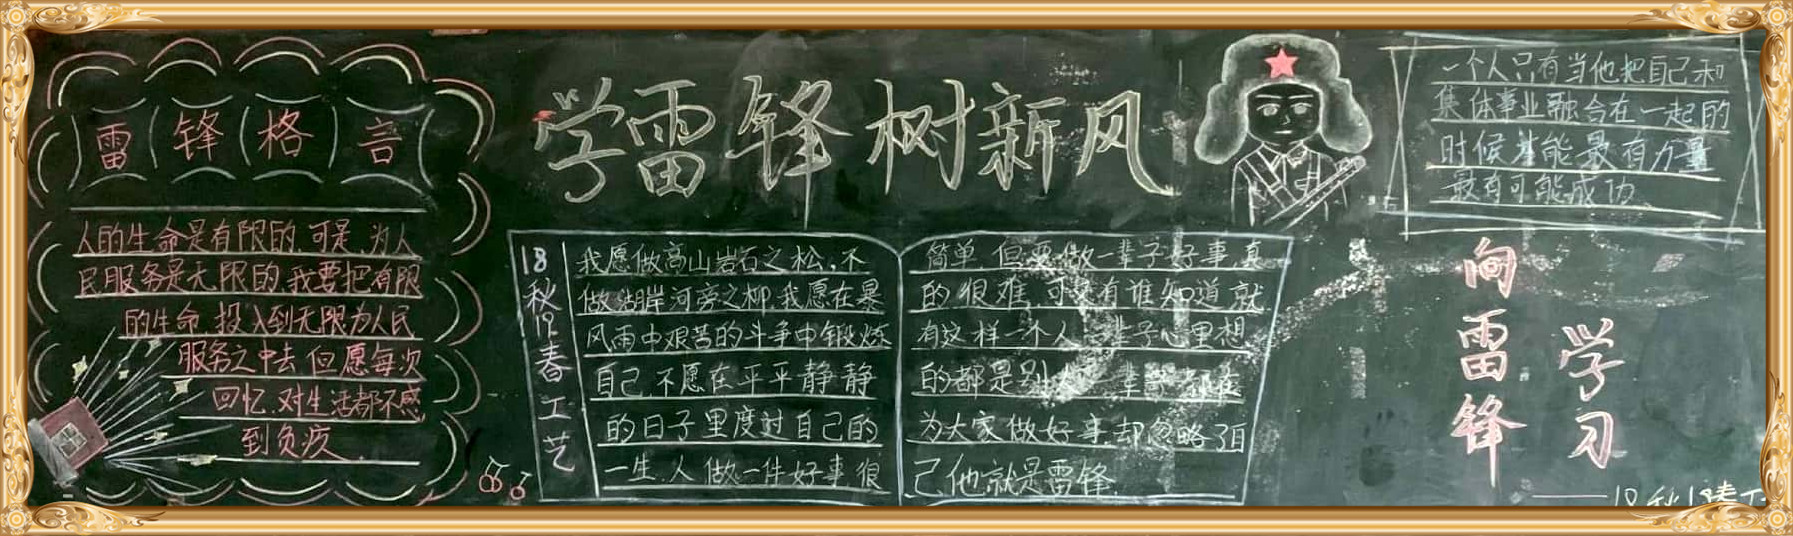 雷锋格言
人的生命是有限的,可是,为人
民服务是无限的,我要把有限
的生命,投入到无限为人民
服务之中去 但愿每次
回忆,对生活都不感
到负疚.
学雷锋树新风
18秋19春工艺
我愿做高山岩石之松,不
做湖岸河旁之柳,我愿在暴
风雨中艰苦的斗争中锻炼
自己,不愿在平平静静
的日子里度过自己的
一生.人做一件好事很
简单 但要做一辈子好事,真
的很难,可又有谁知道就
有这样一个人 一辈子心里想
的都是别人 一辈子都在
为大家做好事,却忽略了自
己他就是雷锋.
一个人只有当他把自己和
集体事业融合在一起的
时候才能最有力量
最有可能成功.
向雷锋
学习